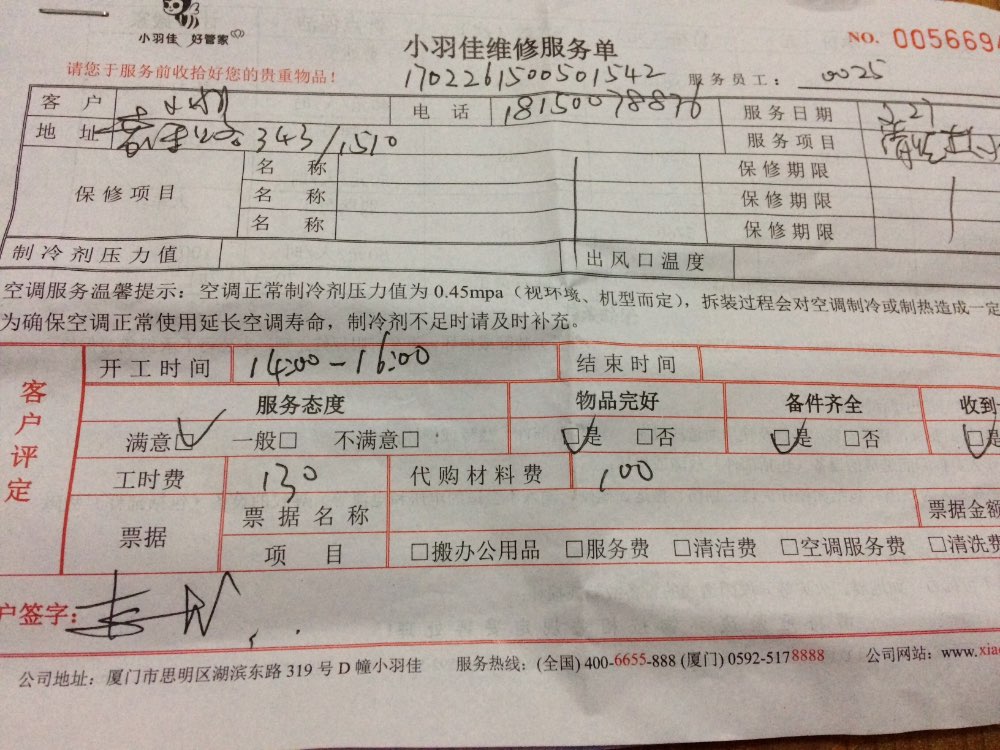 小羽佳 好管家
小羽佳维修服务单
NO. 0056694
请您于服务前收拾好您的贵重物品！
1702261500501542
服务员工： 0025
客 户 电 话 18150078876 服务日期 2.27
地 址 343/1510 服务项目 清洗
保修项目 名 称 保修期限
名 称 保修期限
名 称 保修期限
制冷剂压力值 出风口温度
空调服务温馨提示：空调正常制冷剂压力值为 0.45mpa（视环境、机型而定），拆装过程会对空调制冷或制热造成一定
为确保空调正常使用延长空调寿命，制冷剂不足时请及时补充。
客户评定
开工时间 14:00-16:00 结束时间
服务态度 物品完好 备件齐全 收到
满意□ 一般□ 不满意□ □是 □否 □是 □否 □是
工时费 130 代购材料费 100
票据 票据名称 票据金额
项 目 □搬办公用品 □服务费 □清洁费 □空调服务费 □清洗费
户签字：
公司地址：厦门市思明区湖滨东路 319 号 D 幢小羽佳 服务热线：(全国) 400-6655-888 (厦门) 0592-5178888 公司网站：www.xiao